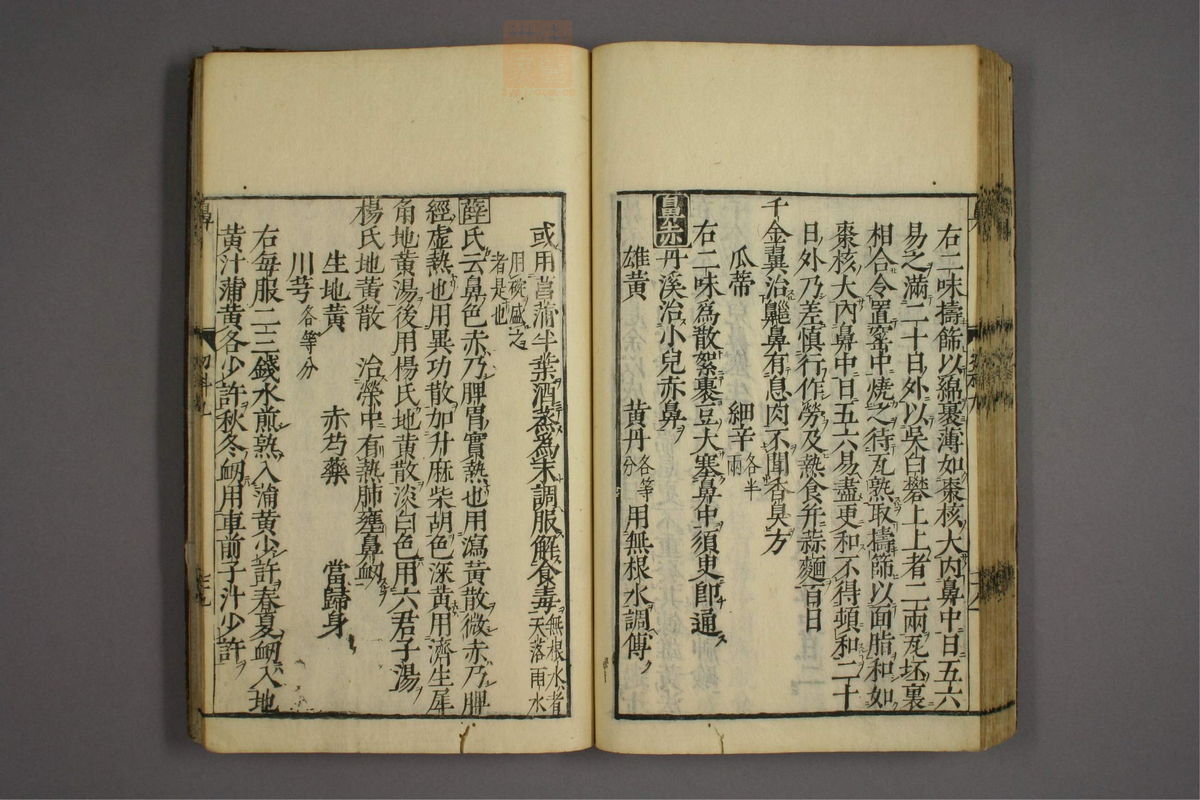 右二味擣篩以緜裹薄如棗核大內鼻中日五六
易之滿二十日外以吳白礬上上者二兩瓦坯裏
相合令置窰中燒之待瓦熟取擣篩以面脂和如
棗核大內鼻中日五六易盡更和不得頓和二十
日外乃差愼行作勞及熱食并蒜麵百日
千金翼治齆鼻有息肉不聞香臭方
瓜蒂 細辛各半兩
右二味爲散絮裹豆大塞鼻中須臾卽通
鼻赤 丹溪治小兒赤鼻
雄黃 黃丹各等分 用無根水調傅
或用菖蒲半葉酒蒸爲末調服解食毒無根水者天落雨水
用碗盛之者是也
薛氏云鼻色赤乃脾胃實熱也用瀉黃散微赤乃脾
經虛熱也用異功散加升麻柴胡色深黃用濟生犀
角地黃湯後用楊氏地黃散淡白色用六君子湯
楊氏地黃散 治榮中有熱肺壅鼻衂
生地黃 赤芍藥 當歸身
川芎各等分
右每服二三錢水煎熟入蒲黃少許春夏衂入地
黃汁蒲黃各少許秋冬衂用車前子汁少許